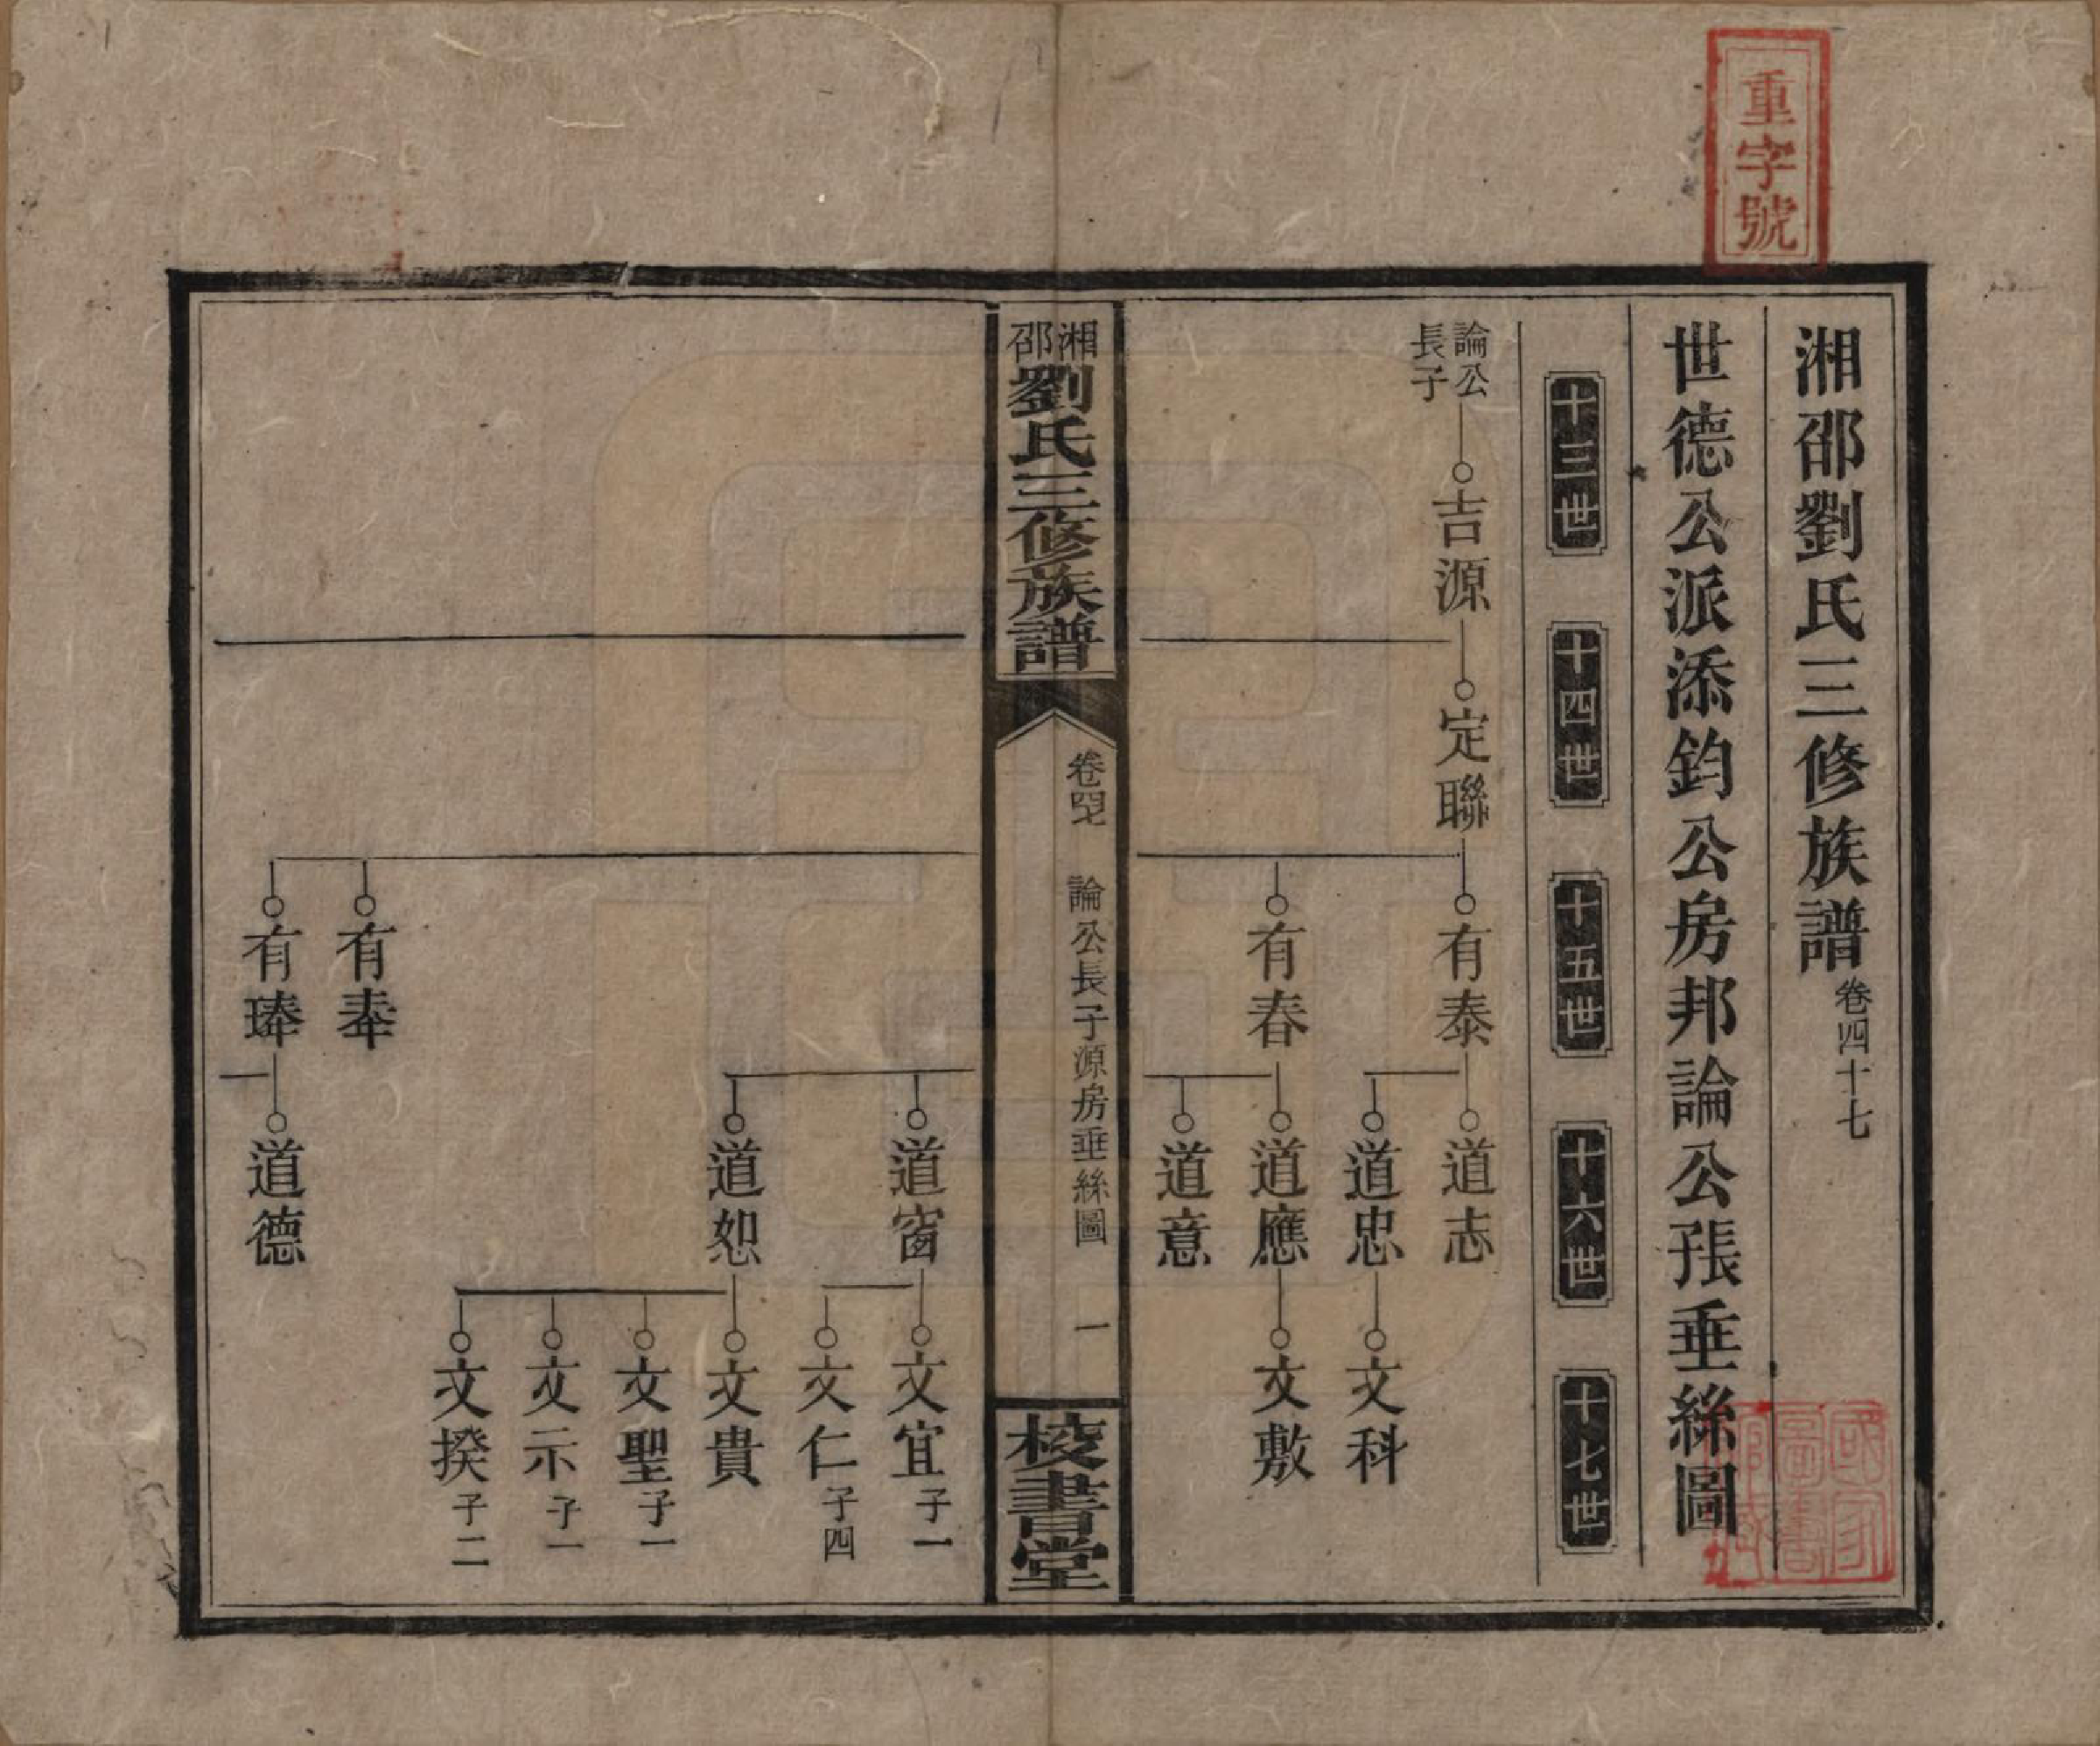 重字號
湘邵劉氏三修族譜卷四十七
世德公派添鈞公房邦論公張垂絲圖
十三世
十四世
十五世
十六世
十七世
論公長子
吉源
定聯
有泰
道志
道忠
文科
有春
道應
文敷
道意
湘邵劉氏三修族譜
卷四七
論公長子源房垂絲圖
一
校書堂
道窗
文宜子一
文仁子四
道恕
文貴
文聖子一
文示子一
文揆子二
有奉
有琫
道德